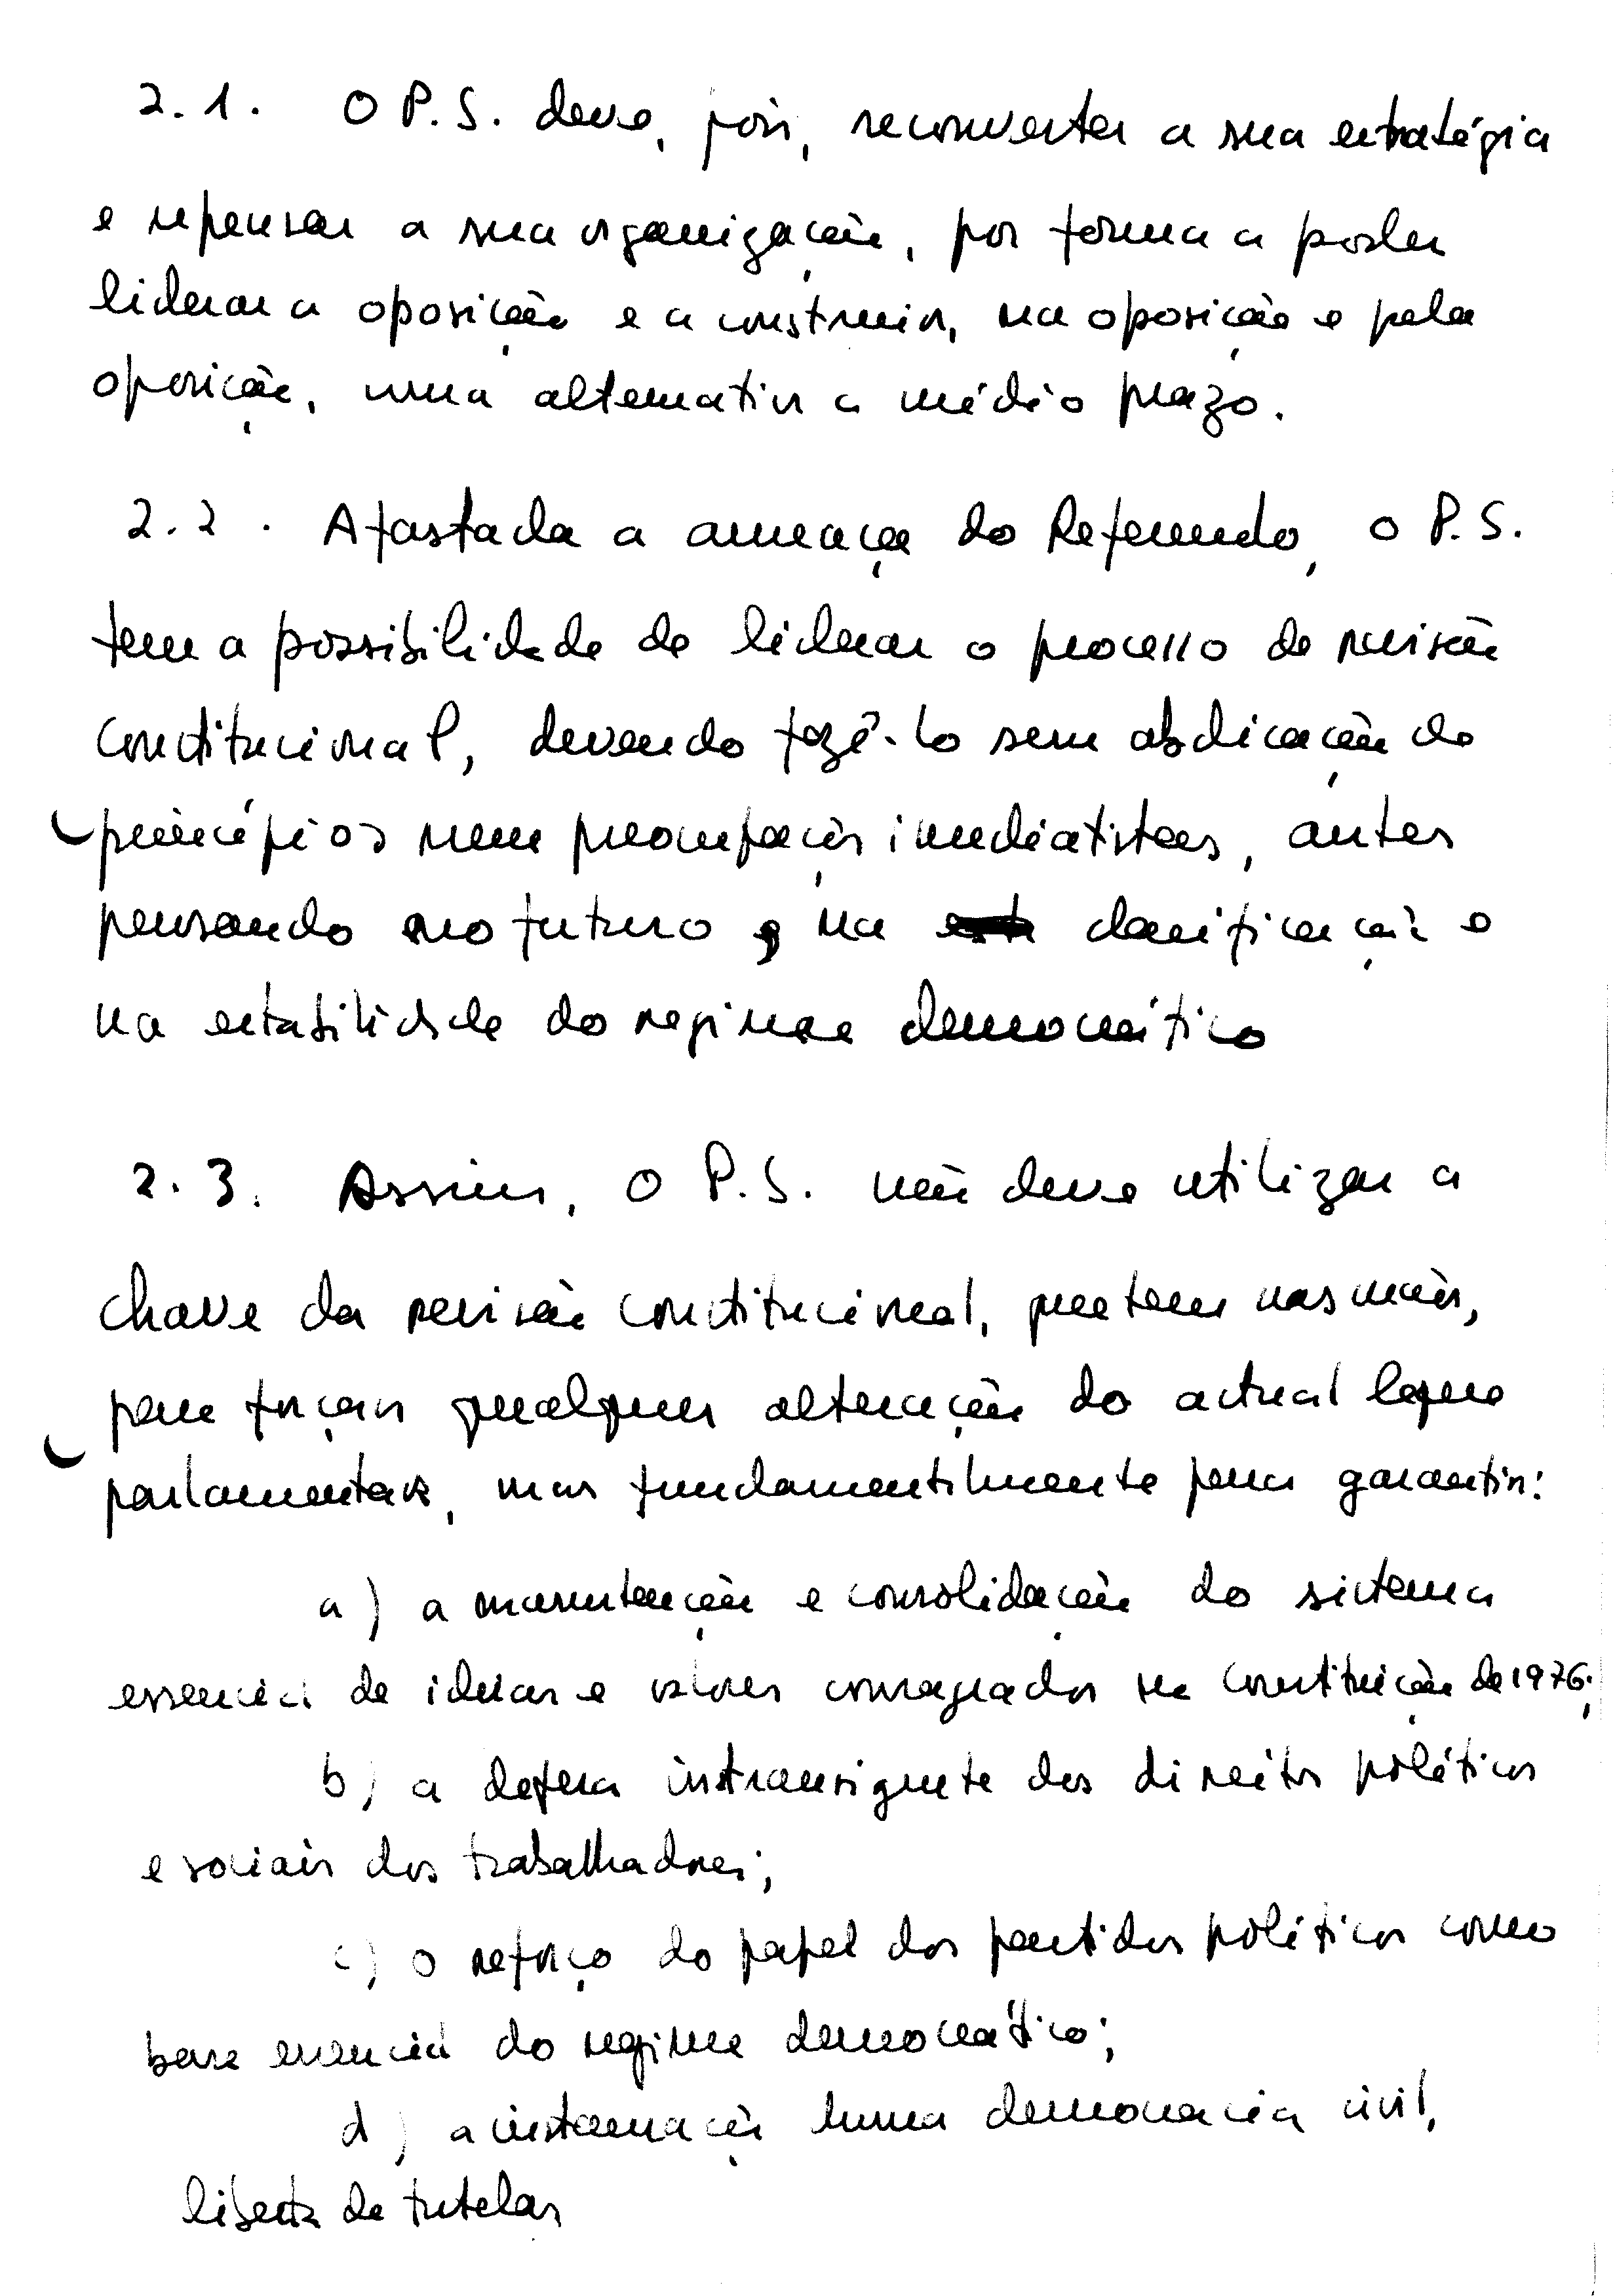 2.1. O P.S. deve, pois, reconverter a sua estratégia
e repensar a sua organização, por forma a poder
liderar a oposição e a construir, na oposição e pela
oposição, uma alternativa a médio prazo.
2.2. Afastada a ameaça do Referendo, o P.S.
tem a possibilidade de liderar o processo de revisão
Constitucional, devendo fazê-lo sem abdicação de
princípios nem preocupações imediatistas, antes
pensando no futuro, na clarificação e
na estabilidade do regime democrático
2.3. Assim, o P.S. não deve utilizar a
chave da revisão constitucional, que tem nas mãos,
para forçar qualquer alteração do actual leque
parlamentar, mas fundamentalmente para garantir:
a) a manutenção e consolidação do sistema
essencial de ideias e valores consagrados na Constituição de 1976;
b) a defesa intransigente dos direitos políticos
e sociais dos trabalhadores;
c) o reforço do papel dos partidos políticos como
base essencial do regime democrático;
d) a instauração duma democracia civil,
liberta de tutelas